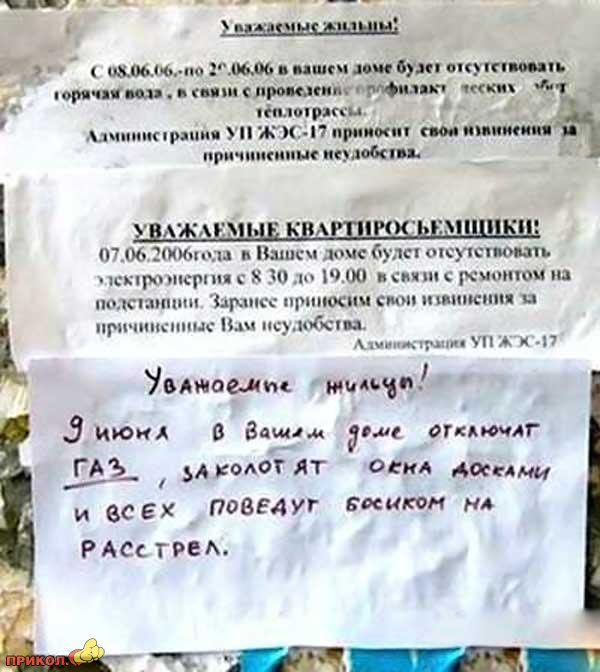 Уважаемые жильцы!
С 08.06.06.-по 2 .06.06 в вашем доме будет отсутствовать
горячая вода , в связи с проведением
теплотрассы.
Администрация УП ЖЭС-17 приносит свои извинения за
причиненные неудобства.
УВАЖАЕМЫЕ КВАРТИРОСЬЕМЩИКИ!
07.06.2006года в Вашем доме будет отсутствовать
электроэнергия с 8 30 до 19.00 в связи с ремонтом на
подстанции. Заранее приносим свои извинения за
причиненные Вам неудобства.
Администрация УП ЖЭС-17
Уважаемые жильцы!
9 июня в Вашем доме отключат
ГАЗ , заколотят окна досками
и всех поведут босиком на
расстрел.
ПРИКОЛ.